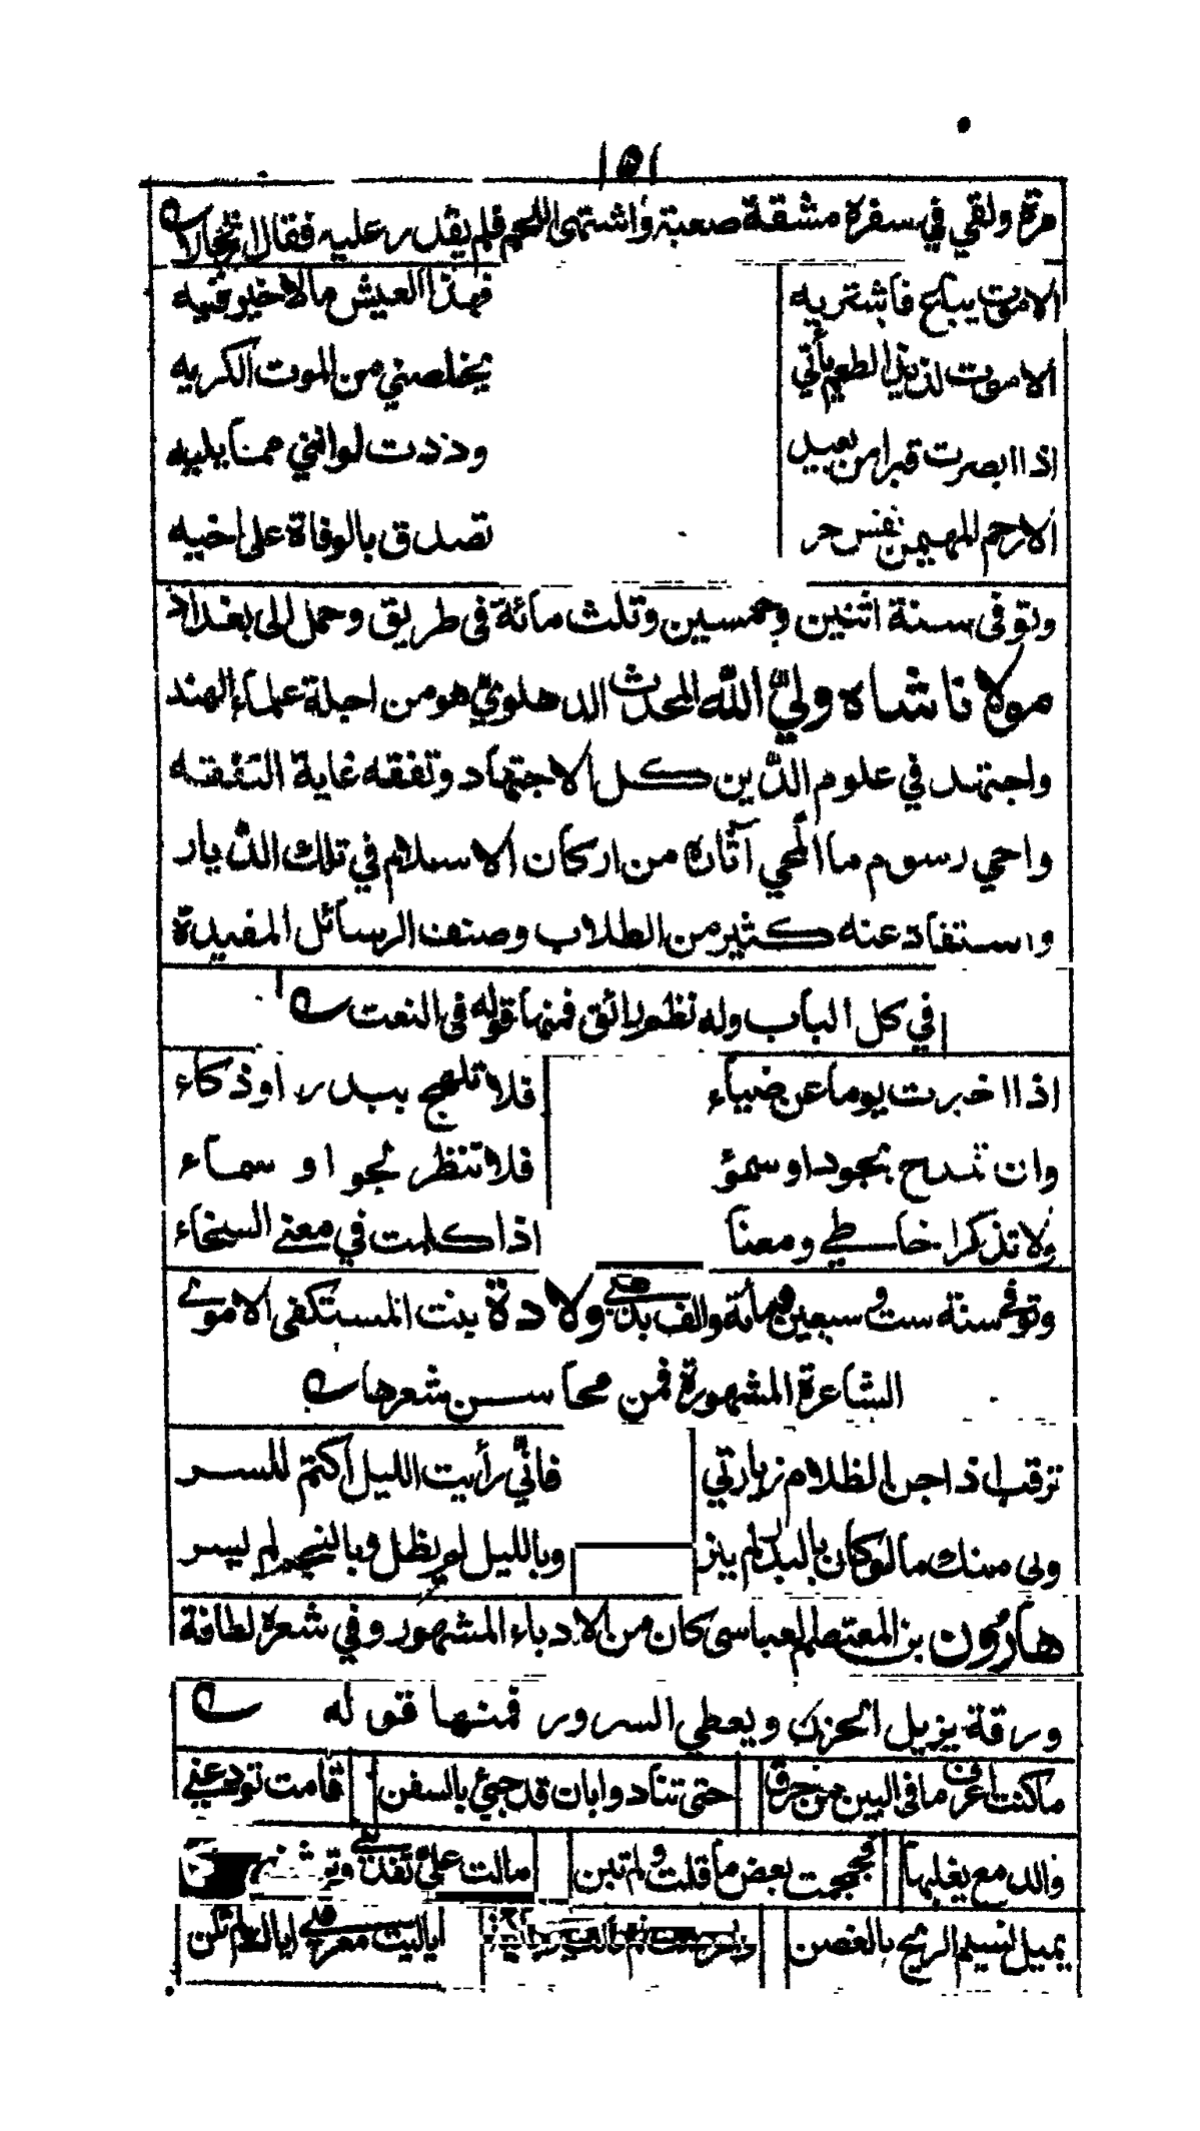 ١٥١
مرة ولقي في سفره مشقة صعبة واشتهى اللحم فلم يقدر عليه فقال ارتجالا
الا موت يباع فاشتريه فهذا العيش ما لا خير فيه
الا موت لذيذ الطعم يأتي يخلصني من الموت الكريه
اذا ابصرت قبرا من بعيد وددت لو انني مما يليه
الا رحم المهيمن نفس حر تصدق بالوفاة على اخيه
وتوفى سنة اثنين وخمسين وثلث مائة فى طريق وحمل الى بغداد
مولانا شاه وليّ الله المحدث الدهلويّ هو من اجلة علماء الهند
واجتهد في علوم الدّين كل الاجتهاد وتفقه غاية التفقه
واحيي رسوم ما امّحي آثاره من اركان الاسلام في تلك الدّيار
واستفاد عنه كثير من الطلاب وصنف الرسائل المفيدة
في كل الباب وله نظم رائق فمنها قوله فى النعت
اذا اخبرت يوما عن ضياء فلا تلهج ببدر او ذكاء
وان تمدح بجود او سموّ فلا تنظر لجو او سماء
ولا تذكرا خاطي ومعنا اذا كلمت في معنے السخاء
وتوفي سنة ست وسبعين ومائة والف بدهلي ولادة بنت المستكفى الاموے
الشاعرة المشهورة فمن محاسن شعرها
ترقب اذا جن الظلام زيارتي فانّي رأيت الليل اكتم للسر
وبى منك ما لو كان بالبدر لم ينر وبالليل لم يظل وبالنجم لم يسر
هارون بن المعتصم العباسى كان من الادباء المشهور وفي شعره لطافة
ورقة يزيل الحزن ويعطي السرور فمنها قوله
ما كنت اعرف ما فى البين من حرق حتى تنادوا بان قد جيئ بالسفن قامت تودعنے
والدمع يغلبها فجمجمت بعض ما قلت ولم تبن مالت عليّ تفدينے
يميل نسيم الريح بالغصن ايا ليت معرفتے ايا لم تكن